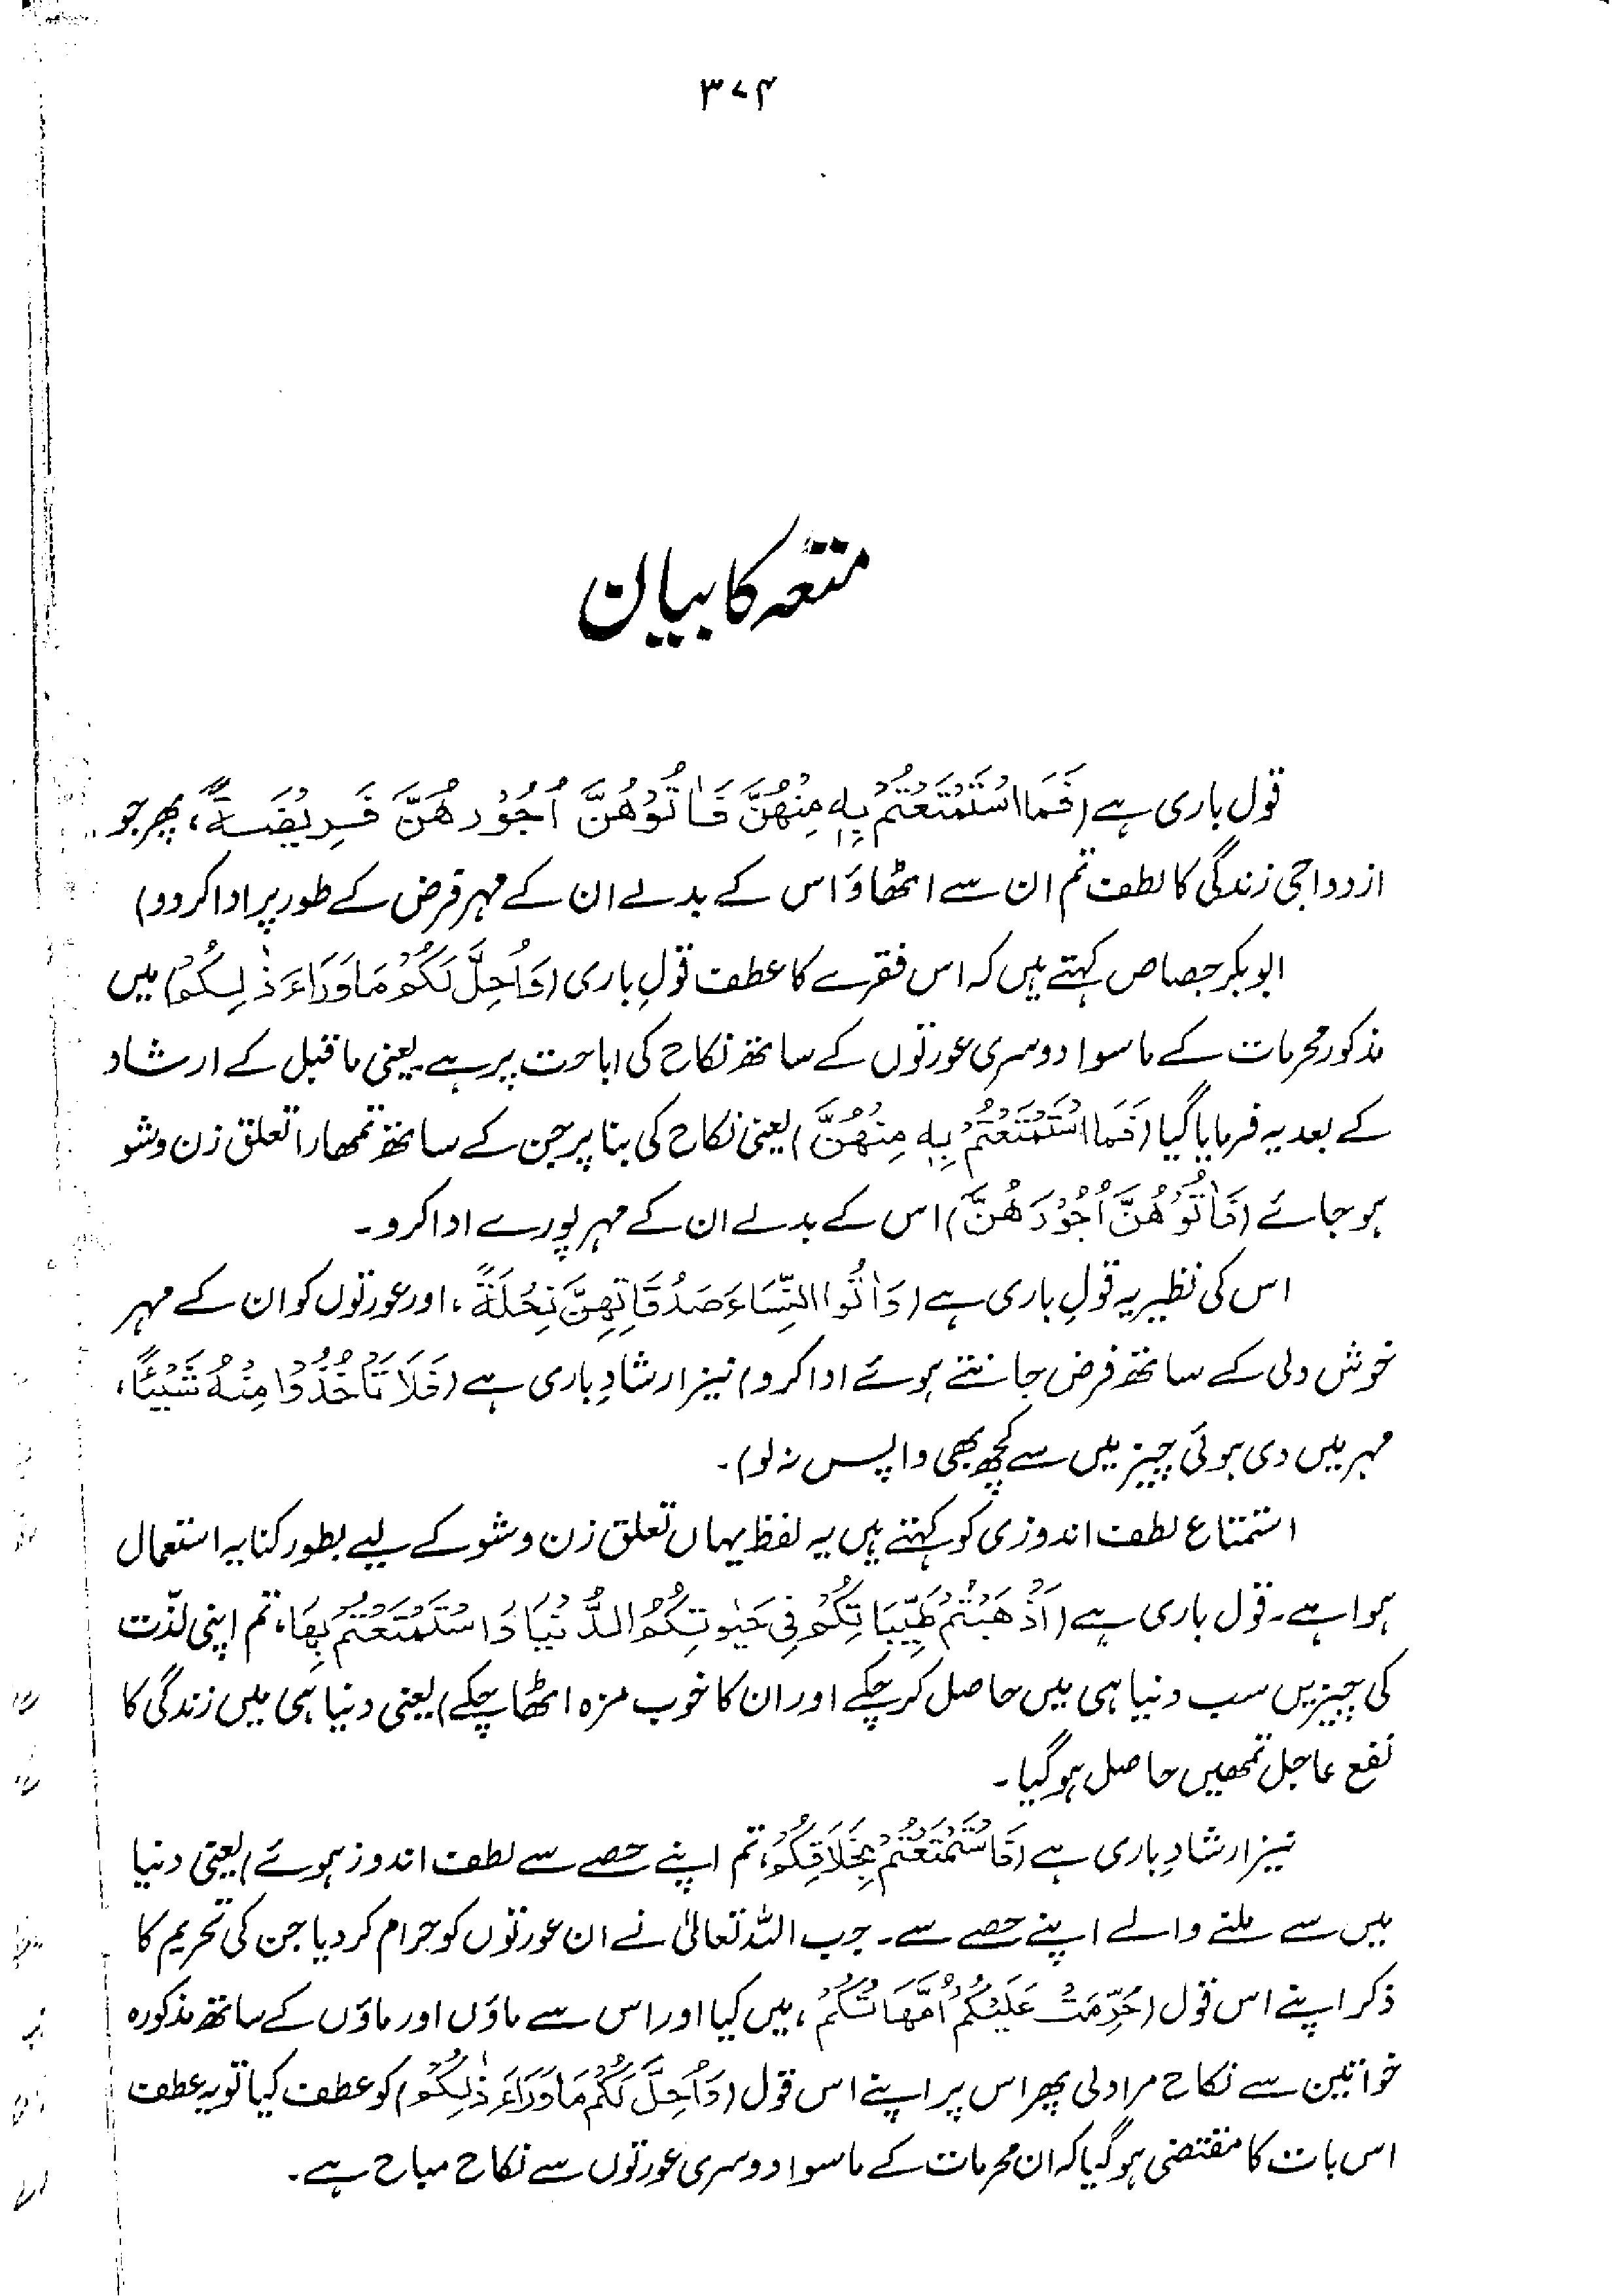 ۳۷۴
متعہ کا بیان
قولِ باری ہے (فَمَا اسْتَمْتَعْتُمْ بِهٖ مِنْهُنَّ فَاٰتُوْهُنَّ اُجُوْرَهُنَّ فَرِيْضَةً، پھر جو
ازدواجی زندگی کا لطف تم ان سے اٹھاؤ اس کے بدلے ان کے مہر فرض کے طور پر ادا کردو)
ابوبکر جصاص کہتے ہیں کہ اس فقرے کا عطف قولِ باری (وَاُحِلَّ لَكُمْ مَا وَرَاءَ ذٰلِكُمْ) میں
مذکور محرمات کے ماسوا دوسری عورتوں کے ساتھ نکاح کی اباحت پر ہے۔ یعنی ماقبل کے ارشاد
کے بعد یہ فرمایا گیا (فَمَا اسْتَمْتَعْتُمْ بِهٖ مِنْهُنَّ) یعنی نکاح کی بنا پر جن کے ساتھ تمھارا تعلق زن و شو
ہو جائے (فَاٰتُوْهُنَّ اُجُوْرَهُنَّ) اس کے بدلے ان کے مہر پورے ادا کرو۔
اس کی نظیر یہ قولِ باری ہے (وَاٰتُوا النِّسَاءَ صَدُقَاتِهِنَّ نِحْلَةً، اور عورتوں کو ان کے مہر
خوش دلی کے ساتھ فرض جانتے ہوئے ادا کرو) نیز ارشادِ باری ہے (فَلَا تَأْخُذُوْا مِنْهُ شَيْئًا،
مہر میں دی ہوئی چیز میں سے کچھ بھی واپس نہ لو)۔
استمتاع لطف اندوزی کو کہتے ہیں یہ لفظ یہاں تعلق زن و شو کے لیے بطور کنایہ استعمال
ہوا ہے۔ قول باری ہے (اَذْهَبْتُمْ طَيِّبَاتِكُمْ فِي حَيٰوتِكُمُ الدُّنْيَا وَاسْتَمْتَعْتُمْ بِهَا، تم اپنی لذّت
کی چیزیں سب دنیا ہی میں حاصل کر چکے اور ان کا خوب مزہ اٹھا چکے) یعنی دنیا ہی میں زندگی کا
نفع عاجل تمھیں حاصل ہوگیا۔
نیز ارشادِ باری ہے (فَاسْتَمْتَعْتُمْ بِخَلَاقِكُمْ، تم اپنے حصے سے لطف اندوز ہوئے) یعنی دنیا
میں سے ملنے والے اپنے حصے سے۔ جب اللہ تعالیٰ نے ان عورتوں کو حرام کردیا جن کی تحریم کا
ذکر اپنے اس قول (حُرِّمَتْ عَلَيْكُمْ اُمَّهَاتُكُمْ، میں کیا اور اس سے ماؤں اور ماؤں کے ساتھ مذکورہ
خواتین سے نکاح مراد لی پھر اس پر اپنے اس قول (وَاُحِلَّ لَكُمْ مَا وَرَاءَ ذٰلِكُمْ) کو عطف کیا تو یہ عطف
اس بات کا مقتضی ہوگیا کہ ان محرمات کے ماسوا دوسری عورتوں سے نکاح مباح ہے۔